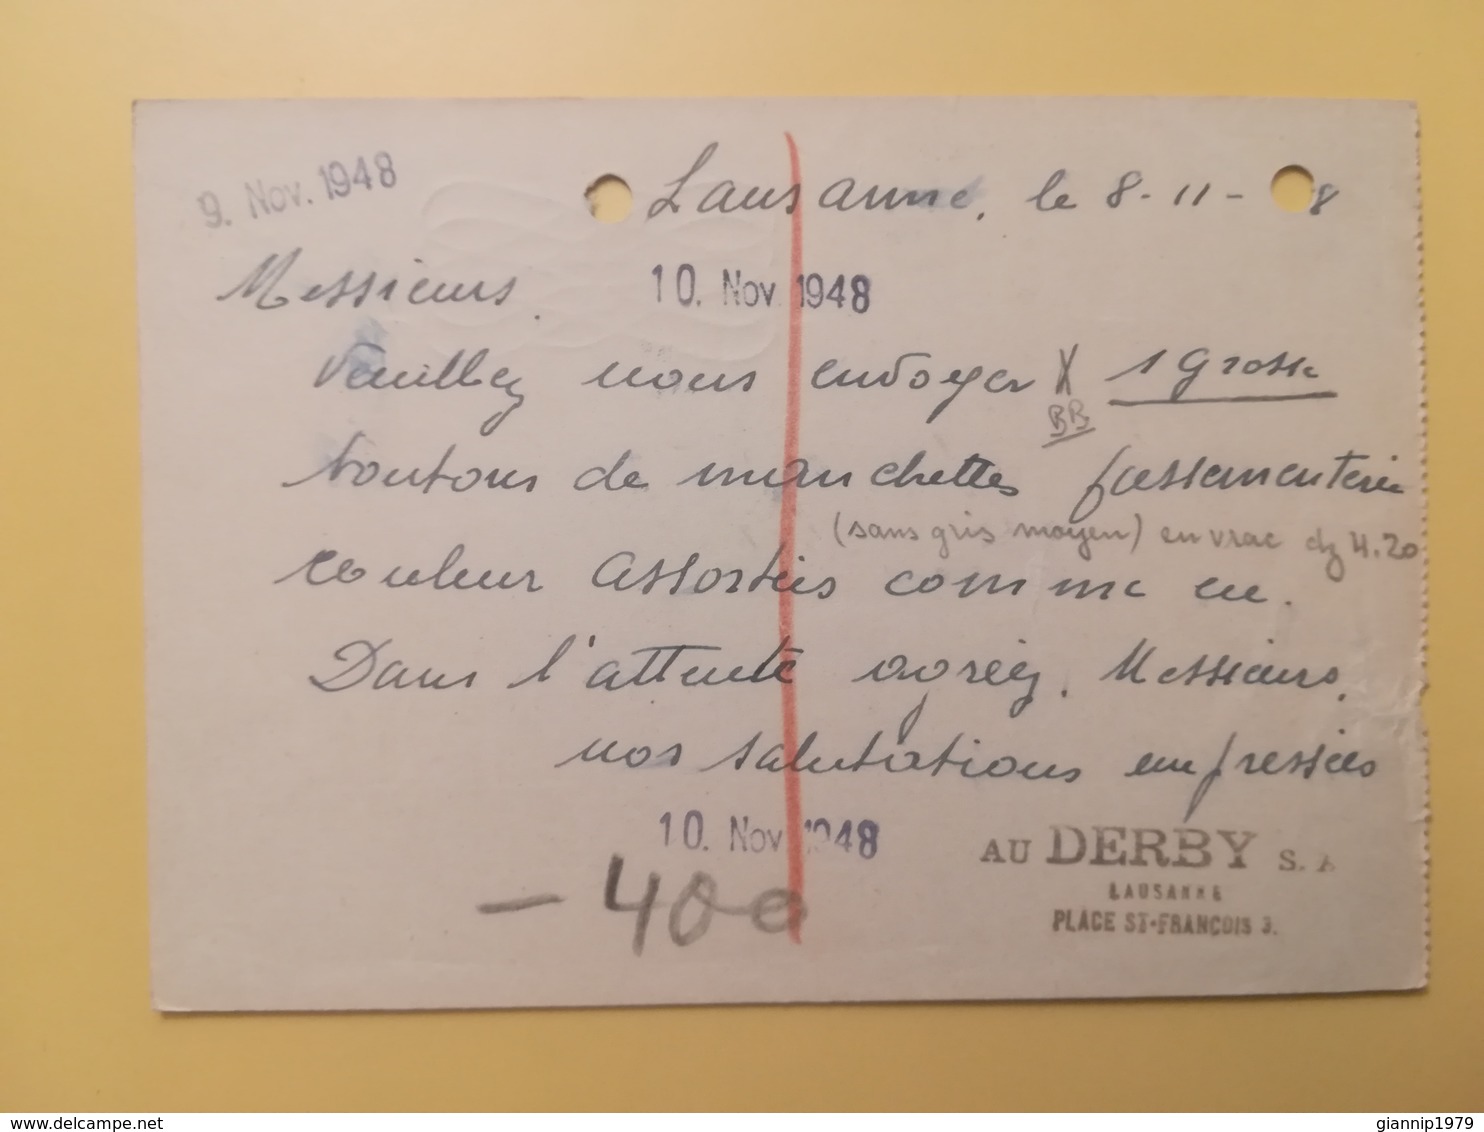 9. Nov. 1948
Lausanne, le 8-11- 8
Messieurs.
10. Nov 1948
Veuillez nous envoyer X 1 Grosse
BB
boutons de manchettes passementerie
(sans gris moyen) en vrac dz 4.20
couleur assorties comme eu.
Dans l'attente agréez, Messieurs,
nos salutations empressées
10. Nov 1948
- 400
AU DERBY S. A
LAUSANNE
PLACE ST-FRANÇOIS 3.
delcampe.net
giannip1979